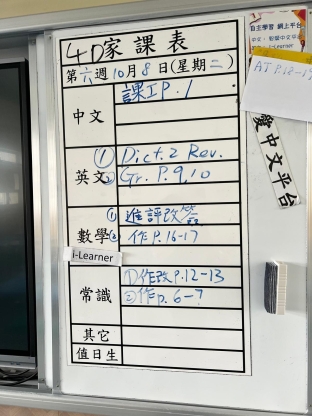 4D家課表
第六週10月8日(星期二)
中文
課IP.1
英文
① Dict.2 Rev.
② Gr. P.9,10
數學
① 進評改簽
② 作P.16-17
i-Learner
常識
①作改P.12-13
②作p.6-7
其它
值日生
自主學習 網上平台
i-Learner
愛中文平台